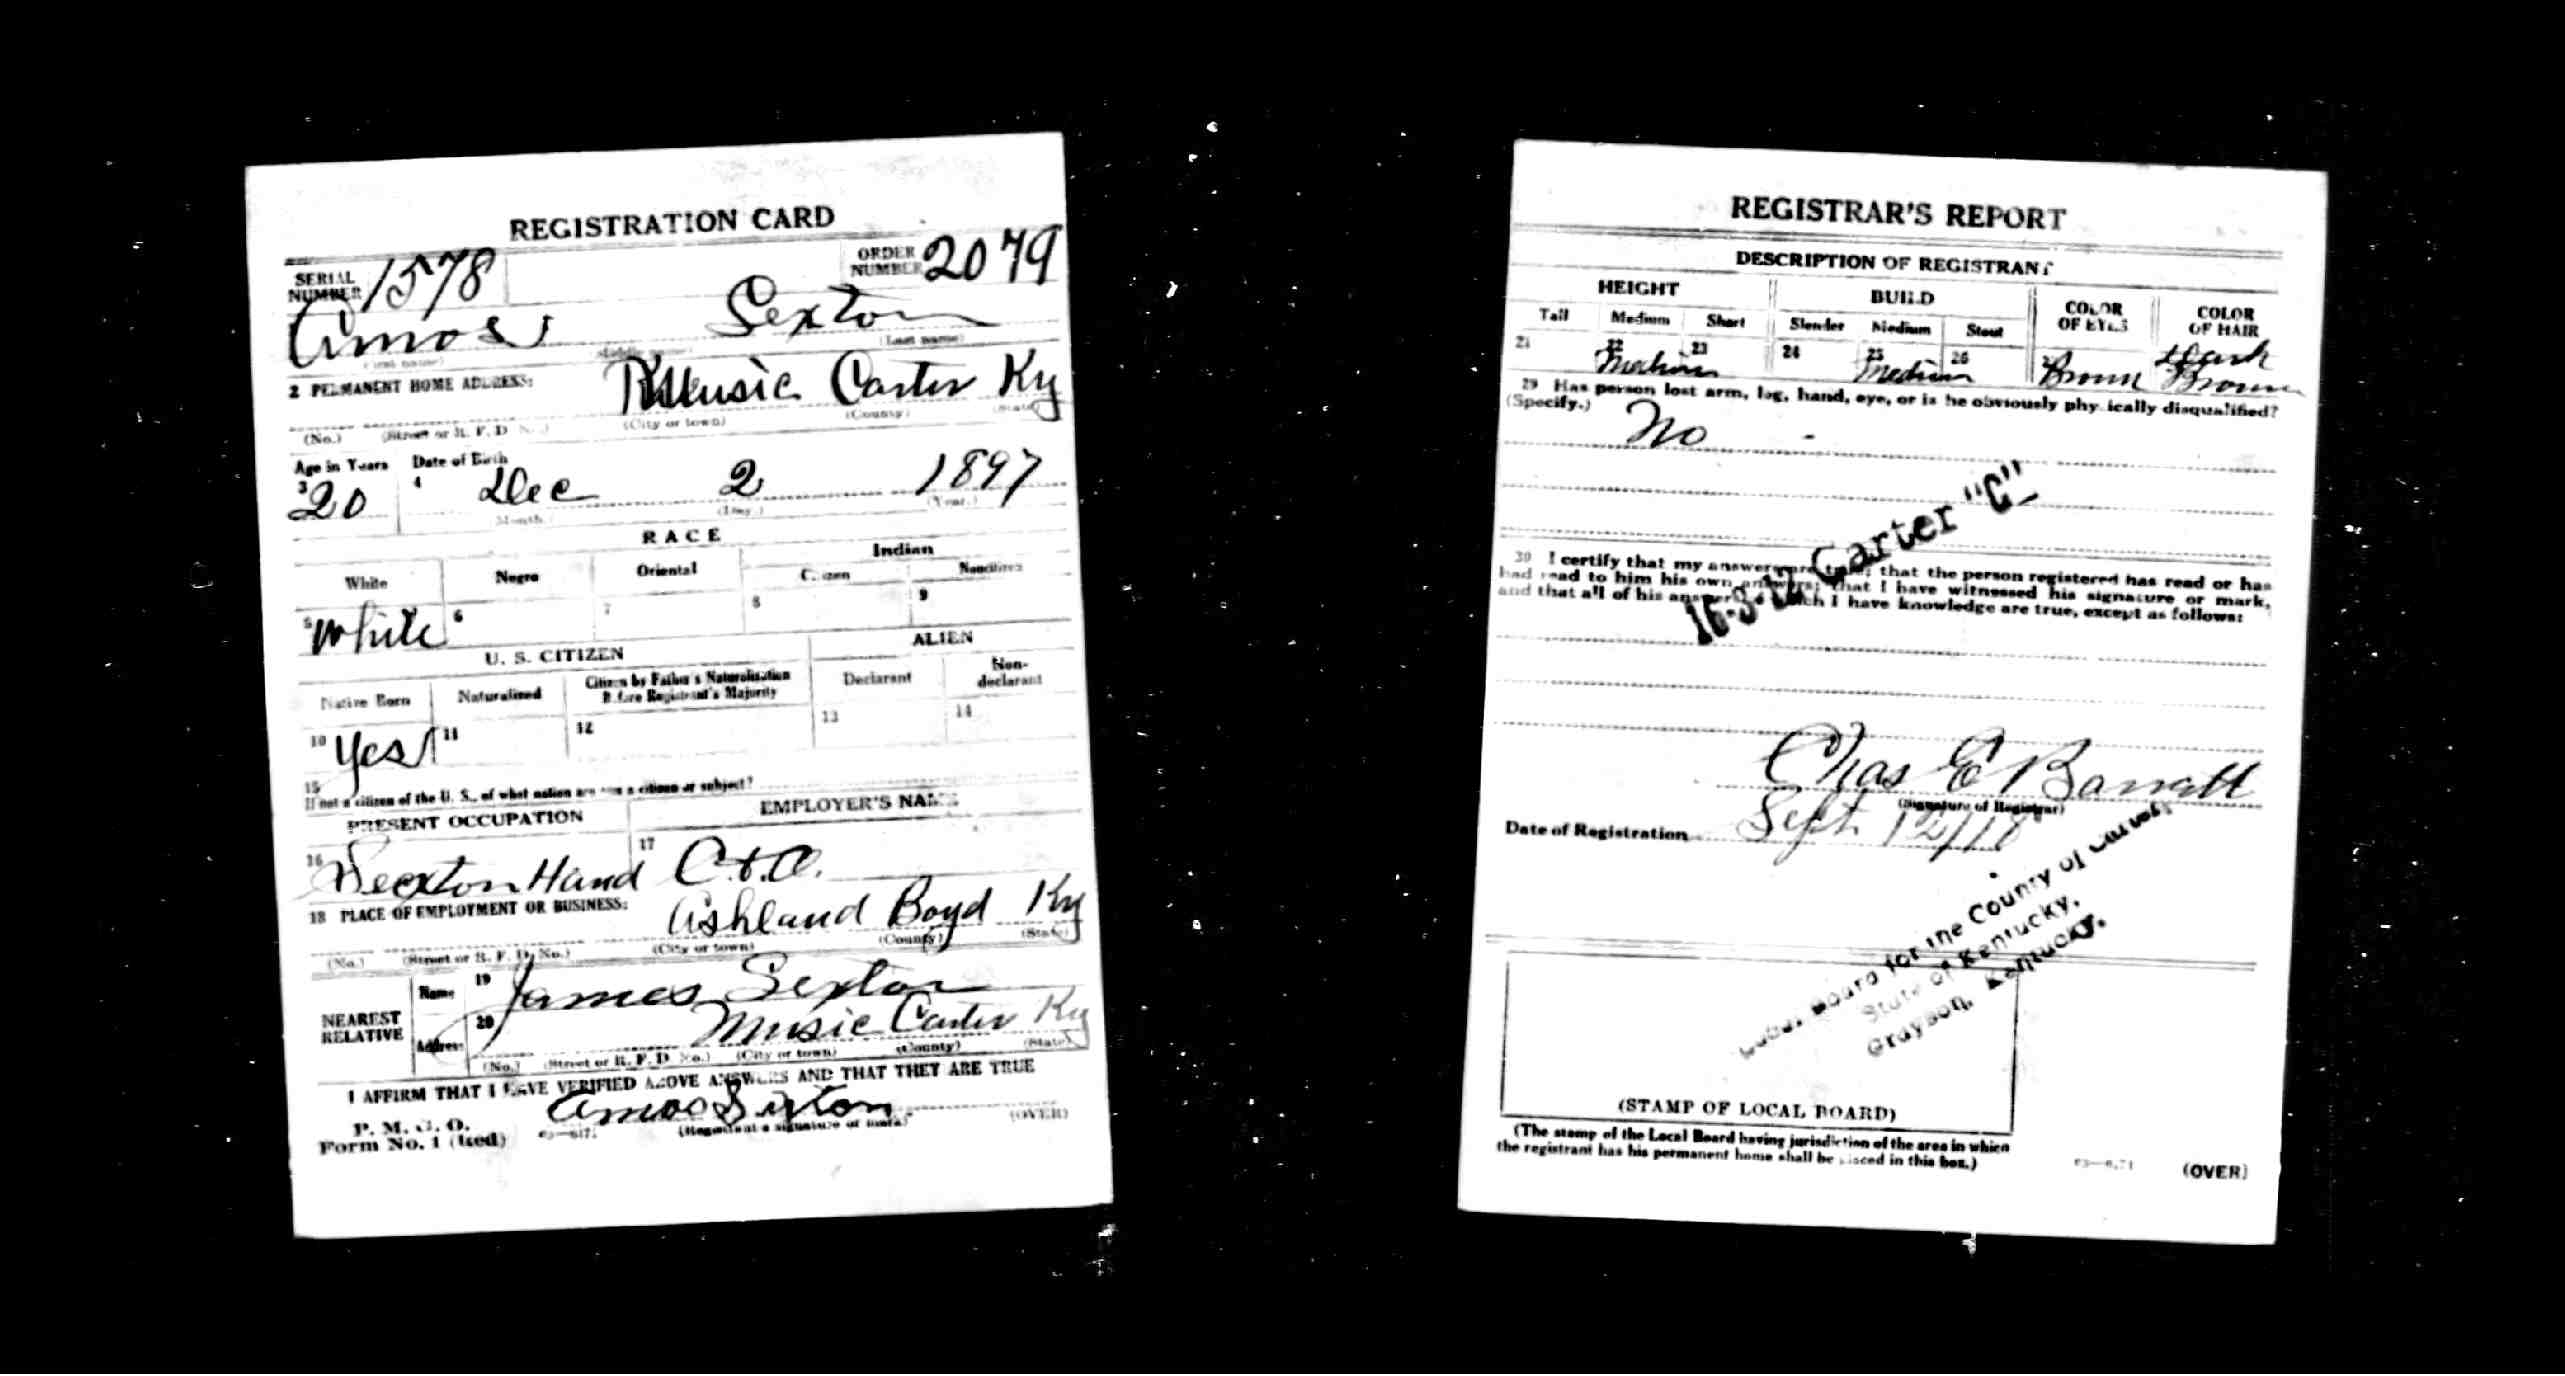 REGISTRATION CARD
SERIAL NUMBER 1578
ORDER NUMBER 2079
Amos Sexton
(Last name)
2 PERMANENT HOME ADDRESS:
Music Carter Ky
(No.) (Street or R. F. D. No.) (City or town) (County) (State)
Age in Years Date of Birth
3 20 4 Dec 2 1897
(Month.) (Day.) (Year.)
RACE
White Negro Oriental Indian
Citizen Noncitizen
5 White 6 7 8 9
U. S. CITIZEN ALIEN
Native Born Naturalized Citizen by Father's Naturalization Before Registrant's Majority Declarant Non-declarant
10 Yes 11 12 13 14
15
If not a citizen of the U. S., of what nation are you a citizen or subject?
PRESENT OCCUPATION EMPLOYER'S NAME
16 Sexton Hand 17 C. & O.
18 PLACE OF EMPLOYMENT OR BUSINESS:
Ashland Boyd Ky
(No.) (Street or R. F. D. No.) (City or town) (County) (State)
NEAREST RELATIVE
Name 19 James Sexton
Address 20 Music Carter Ky
(No.) (Street or R. F. D. No.) (City or town) (County) (State)
I AFFIRM THAT I HAVE VERIFIED ABOVE ANSWERS AND THAT THEY ARE TRUE
P. M. G. O.
Form No. 1 (Red)
Amos Sexton
(Registrant's signature or mark) (OVER)
REGISTRAR'S REPORT
DESCRIPTION OF REGISTRANT
HEIGHT BUILD COLOR OF EYES COLOR OF HAIR
Tall Medium Short Slender Medium Stout
21 22 Medium 23 24 25 Medium 26 Brown Dark Brown
29 Has person lost arm, leg, hand, eye, or is he obviously physically disqualified?
(Specify.) No
30 I certify that my answers are true; that the person registered has read or has
had read to him his own answers; that I have witnessed his signature or mark,
and that all of his answers of which I have knowledge are true, except as follows:
16-3-12 Carter "C"
Chas E Barrett
(Signature of Registrar)
Date of Registration Sept 12/18
Local Board for the County of Carter
State of Kentucky,
Grayson, Kentucky.
(STAMP OF LOCAL BOARD)
(The stamp of the Local Board having jurisdiction of the area in which
the registrant has his permanent home shall be placed in this box.)
(OVER)